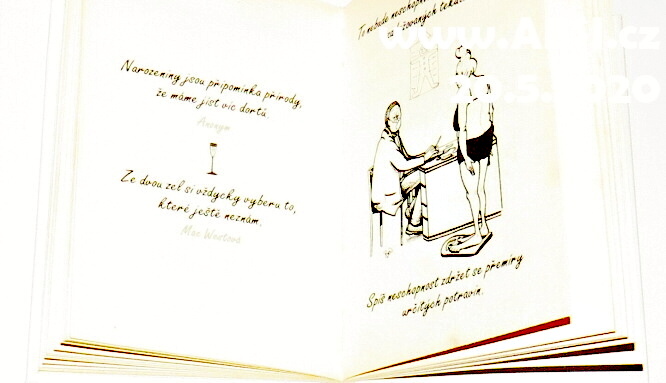 Narozeniny jsou připomínka přírody,
že máme jíst víc dortů.
Anonym
Ze dvou zel si vždycky vyberu to,
které ještě neznám.
Mae Westová
To nebude neschopn
Spíš neschopnost zdržet se přemíry
určitých potravin.